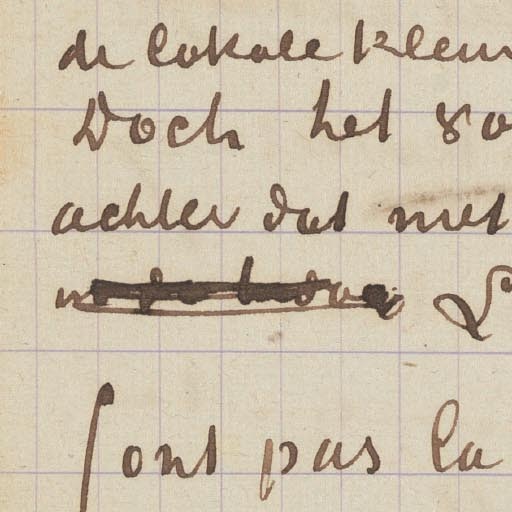 de lokale kleur
Doch het zo
achter dat met
font pas la